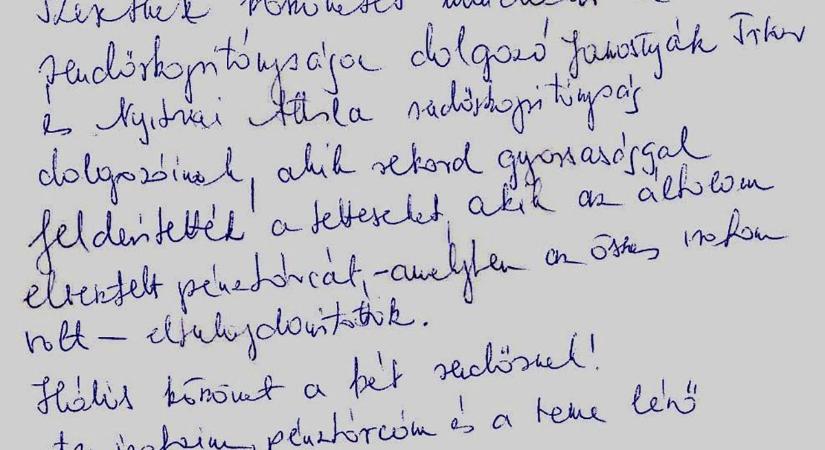 rendőrkapitányságon dolgozó Jamostyák Tibor
és Nyitrai Attila rendőrkapitányság
dolgozóinak, akik rekord gyorsasággal
felderítették a tetteseket, akik az általam
elvesztett pénztárcát, -amelyben az összes iratom
volt — eltulajdonították.
Hálás köszönet a két rendőrnek!
irataim, pénztárcám és a benne lévő